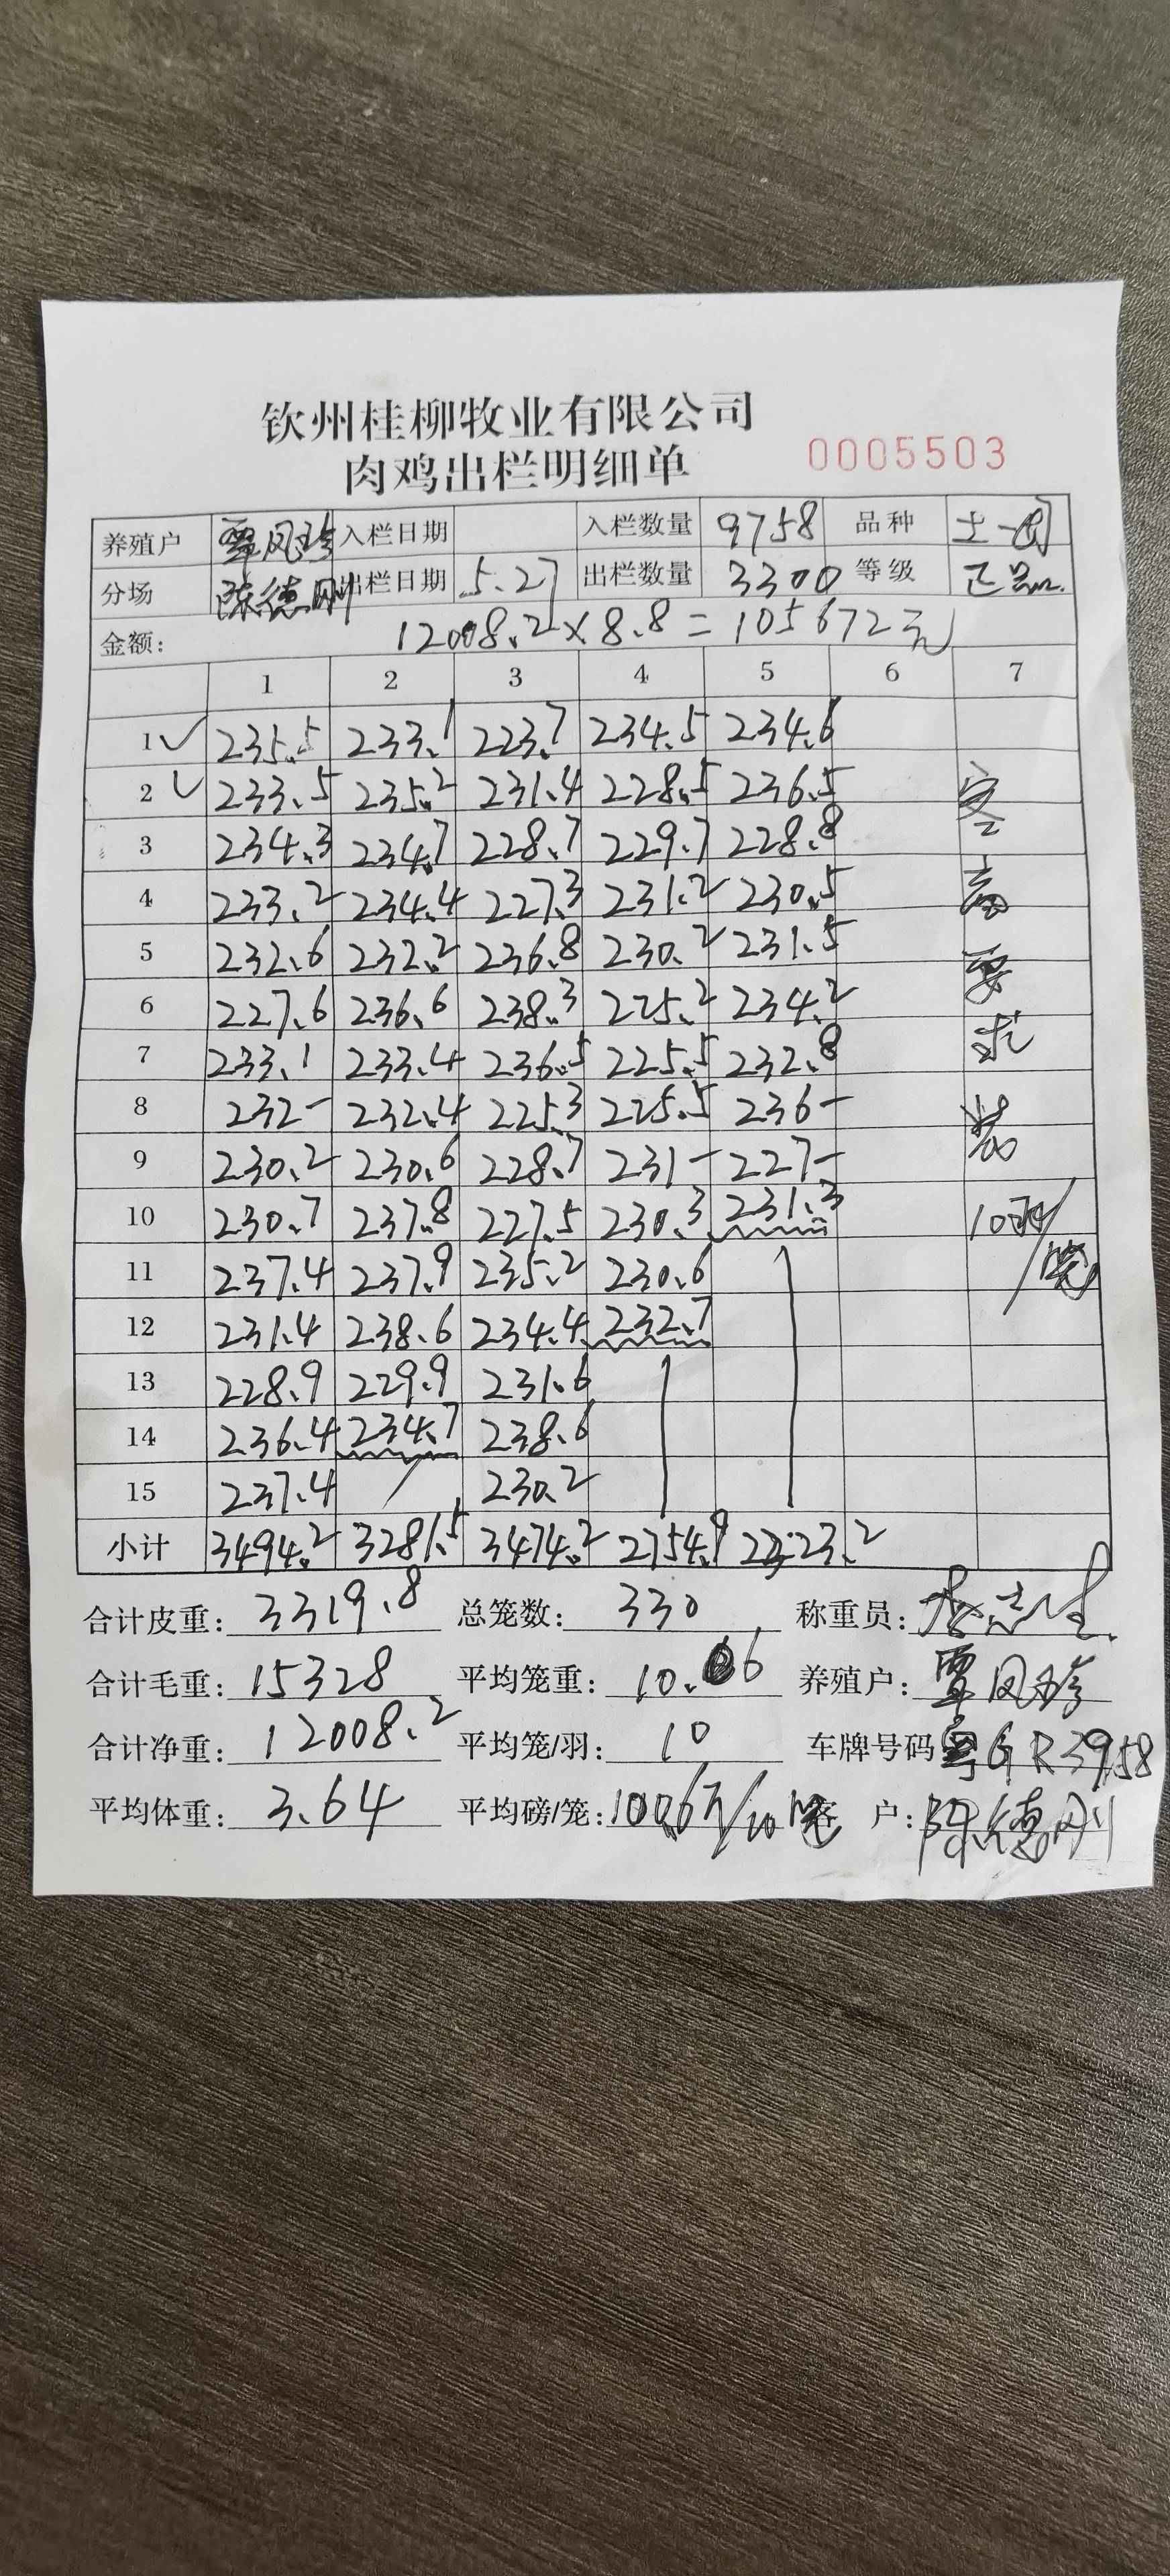 钦州桂柳牧业有限公司
肉鸡出栏明细单 0005503
养殖户 覃凤珍 入栏日期 入栏数量 9758 品种 土一
分场 陈德刚 出栏日期 5.27 出栏数量 3300 等级 正品
金额: 12008.2×8.8=105672元
1 2 3 4 5 6 7
1 ✓ 235.5 233.1 223.7 234.5 234.6
2 ✓ 233.5 235.2 231.4 228.5 236.5 客
3 234.3 234.7 228.7 229.7 228.8
4 233.2 234.4 227.3 231.2 230.5 商
5 232.6 232.2 236.8 230.2 231.5
6 227.6 236.6 238.3 225.2 234.2 要
7 233.1 233.4 236.5 225.5 232.8 求
8 232- 232.4 225.3 225.5 236- 装
9 230.2 230.6 228.7 231- 227-
10 230.7 237.8 227.5 230.3 231.3 10羽/
11 237.4 237.9 235.2 230.6 笼
12 231.4 238.6 234.4 232.7
13 228.9 229.9 231.6
14 236.4 234.7 238.6
15 237.4 230.2
小计 3494.2 3281.5 3474.2 2754.9 2323.2
合计皮重: 3319.8 总笼数: 330 称重员:
合计毛重: 15328 平均笼重: 10.06 养殖户: 覃凤珍
合计净重: 12008.2 平均笼/羽: 10 车牌号码 粤GR3958
平均体重: 3.64 平均磅/笼: 100.6斤/10笼 客 户: 陈德刚